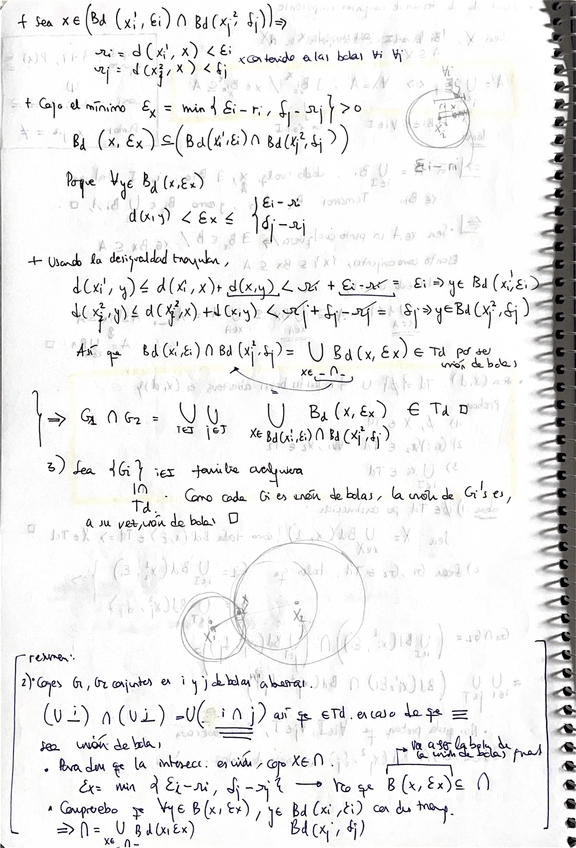 + Sea x ∈ (Bd (xi¹, εi) ∩ Bd (xj², δj)) ⇒
ri = d(xi¹, x) < εi
rj = d(xj², x) < δj
x contenido en las bolas ∀i ∀j
+ Cojo el mínimo εx = min { εi - ri, δj - rj } > 0
Bd (x, εx) ⊆ (Bd(xi¹, εi) ∩ Bd(xj², δj))
εi - ri
Porque ∀y ∈ Bd (x, εx)
d(x,y) < εx ≤ { εi - ri
δj - rj
+ Usando la desigualdad triangular,
d(xi¹, y) ≤ d(xi¹, x) + d(x,y) < ri + εi - ri = εi ⇒ y ∈ Bd(xi¹, εi)
d(xj², y) ≤ d(xj², x) + d(x,y) < rj + δj - rj = δj ⇒ y ∈ Bd(xj², δj)
Así que Bd(xi¹, εi) ∩ Bd(xj², δj) = ∪ Bd(x, εx) ∈ Td por ser
x ∈ -∩- unión de bolas
} ⇒ G1 ∩ G2 = ∪ ∪ ∪ Bd (x, εx) ∈ Td □
i∈I j∈J x∈ Bd(xi¹, εi) ∩ Bd(xj², δj)
3) Sea {Gi} i∈I familia cualquiera
Td. Como cada Gi es unión de bolas, la unión de Gi's es,
a su vez, unión de bolas □
x
xi x2
resumen:
2) Cojes G1, G2 conjuntos es i y j de bolas abiertas.
(∪ i) ∩ (∪ j) = ∪( i ∩ j) así que ∈ Td. en caso de que ≡
sea unión de bolas
• Para don que la intersecc. es unión, cojo x ∈ ∩.
va a ser la bola de
la unión de bolas
εx = min { εi - ri, δj - rj } → veo que B (x, εx) ⊆ ∩
• Compruebo que ∀y ∈ B(x, εx), y ∈ Bd (xi, εi) con des triang.
⇒ ∩ = ∪ Bd(x, εx) Bd(xj, δj)
x∈ -∩-